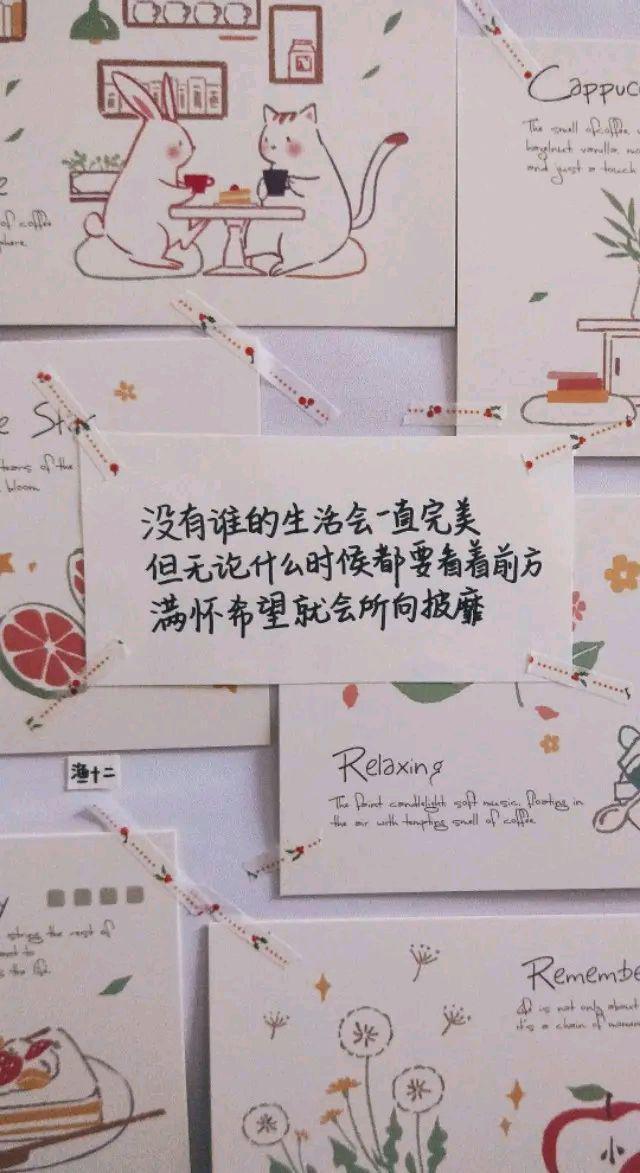 Cappuc
The smell of coffee,
and just a touch
of coffee
phere.
tears of the
bloom.
没有谁的生活会一直完美
但无论什么时候都要看着前方
满怀希望就会所向披靡
Relaxing
The faint candlelight, soft music, floating in
the air with tempting smell of coffee
渔十二
string the rest of
the life.
Remembe
It is not only about
it's a chain of
小